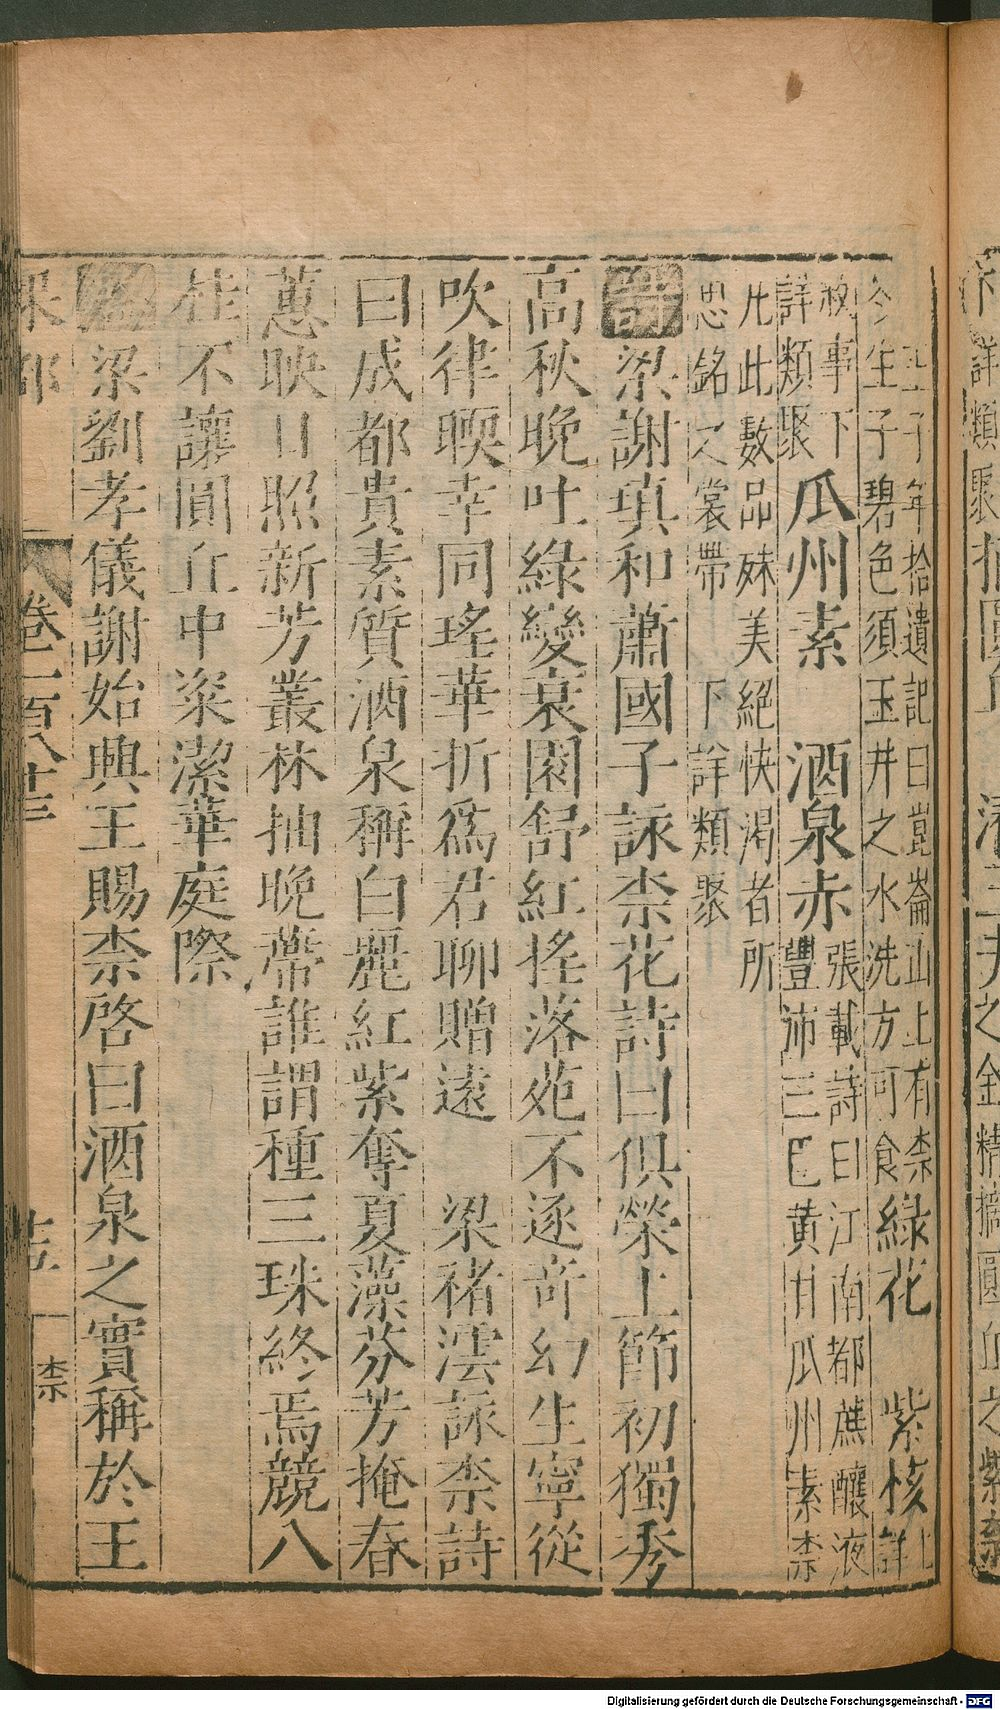 詳類聚
之金精摘圓丘之紫柰
王子年拾遺記曰崑崙山上有柰
冬生子碧色須玉井之水洗方可食
綠花 紫核
上
詳
核事下
詳類聚
瓜州素 酒泉赤
張載詩曰江南都蔗釀液
豐沛三巴黃甘瓜州素柰
凡此數品殊美絕快渴者所
思銘之裳帶 下詳類聚
詩 梁謝瑱和蕭國子詠柰花詩曰俱榮上節初獨秀
高秋晚吐綠變衰園舒紅搖落苑不逐奇幻生寧從
吹律暝幸同瑤華折爲君聊贈遠 梁褚澐詠柰詩
曰成都貴素質酒泉稱白麗紅紫奪夏藻芬芳掩春
蕙映日照新芳叢林抽晚蔕誰謂種三珠終焉競八
桂不讓圓丘中粲潔華庭際
梁劉孝儀謝始興王賜柰啓曰酒泉之實稱於王
果部 卷一百八十三 十五 柰
Digitalisierung gefördert durch die Deutsche Forschungsgemeinschaft - DFG